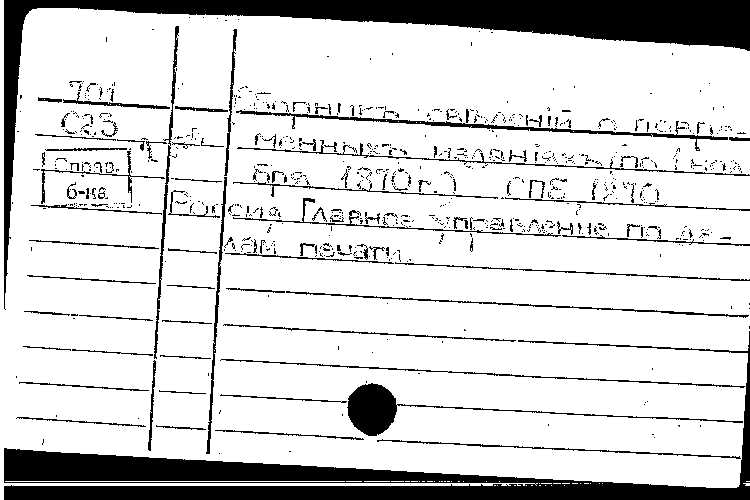 701
С23
Справ.
б-ка
Сборникъ свѣденій о повре-
менныхъ изданіяхъ (по 1 ноя
бря 1870 г.) СПб, 1870
Россия Главное управление по де-
лам печати.